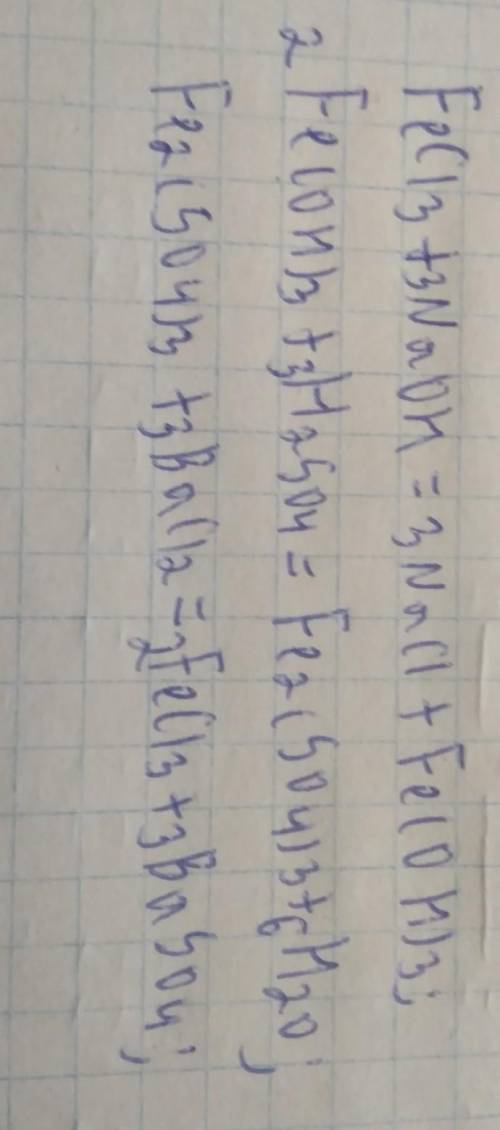 FeCl3+3NaOH=3NaCl+Fe(OH)3;
2Fe(OH)3+3H2SO4=Fe2(SO4)3+6H2O;
Fe2(SO4)3+3BaCl2=2FeCl3+3BaSO4;